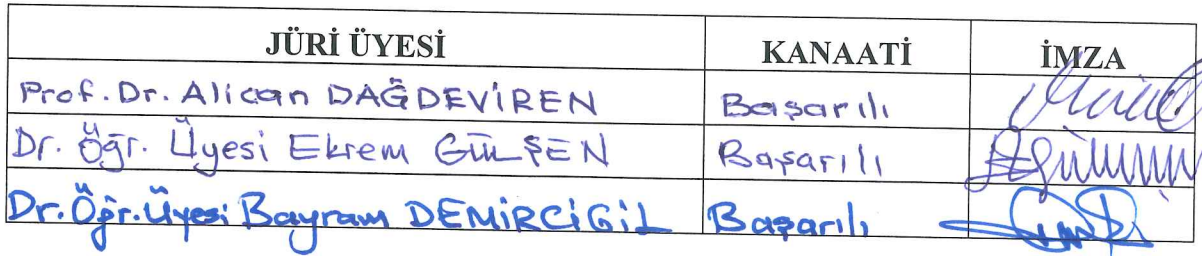 JÜRİ ÜYESİ KANAATİ İMZA
Prof. Dr. Alican DAĞDEVİREN Başarılı
Dr. Öğr. Üyesi Ekrem GÜLŞEN Başarılı
Dr. Öğr. Üyesi Bayram DEMİRCİGİL Başarılı